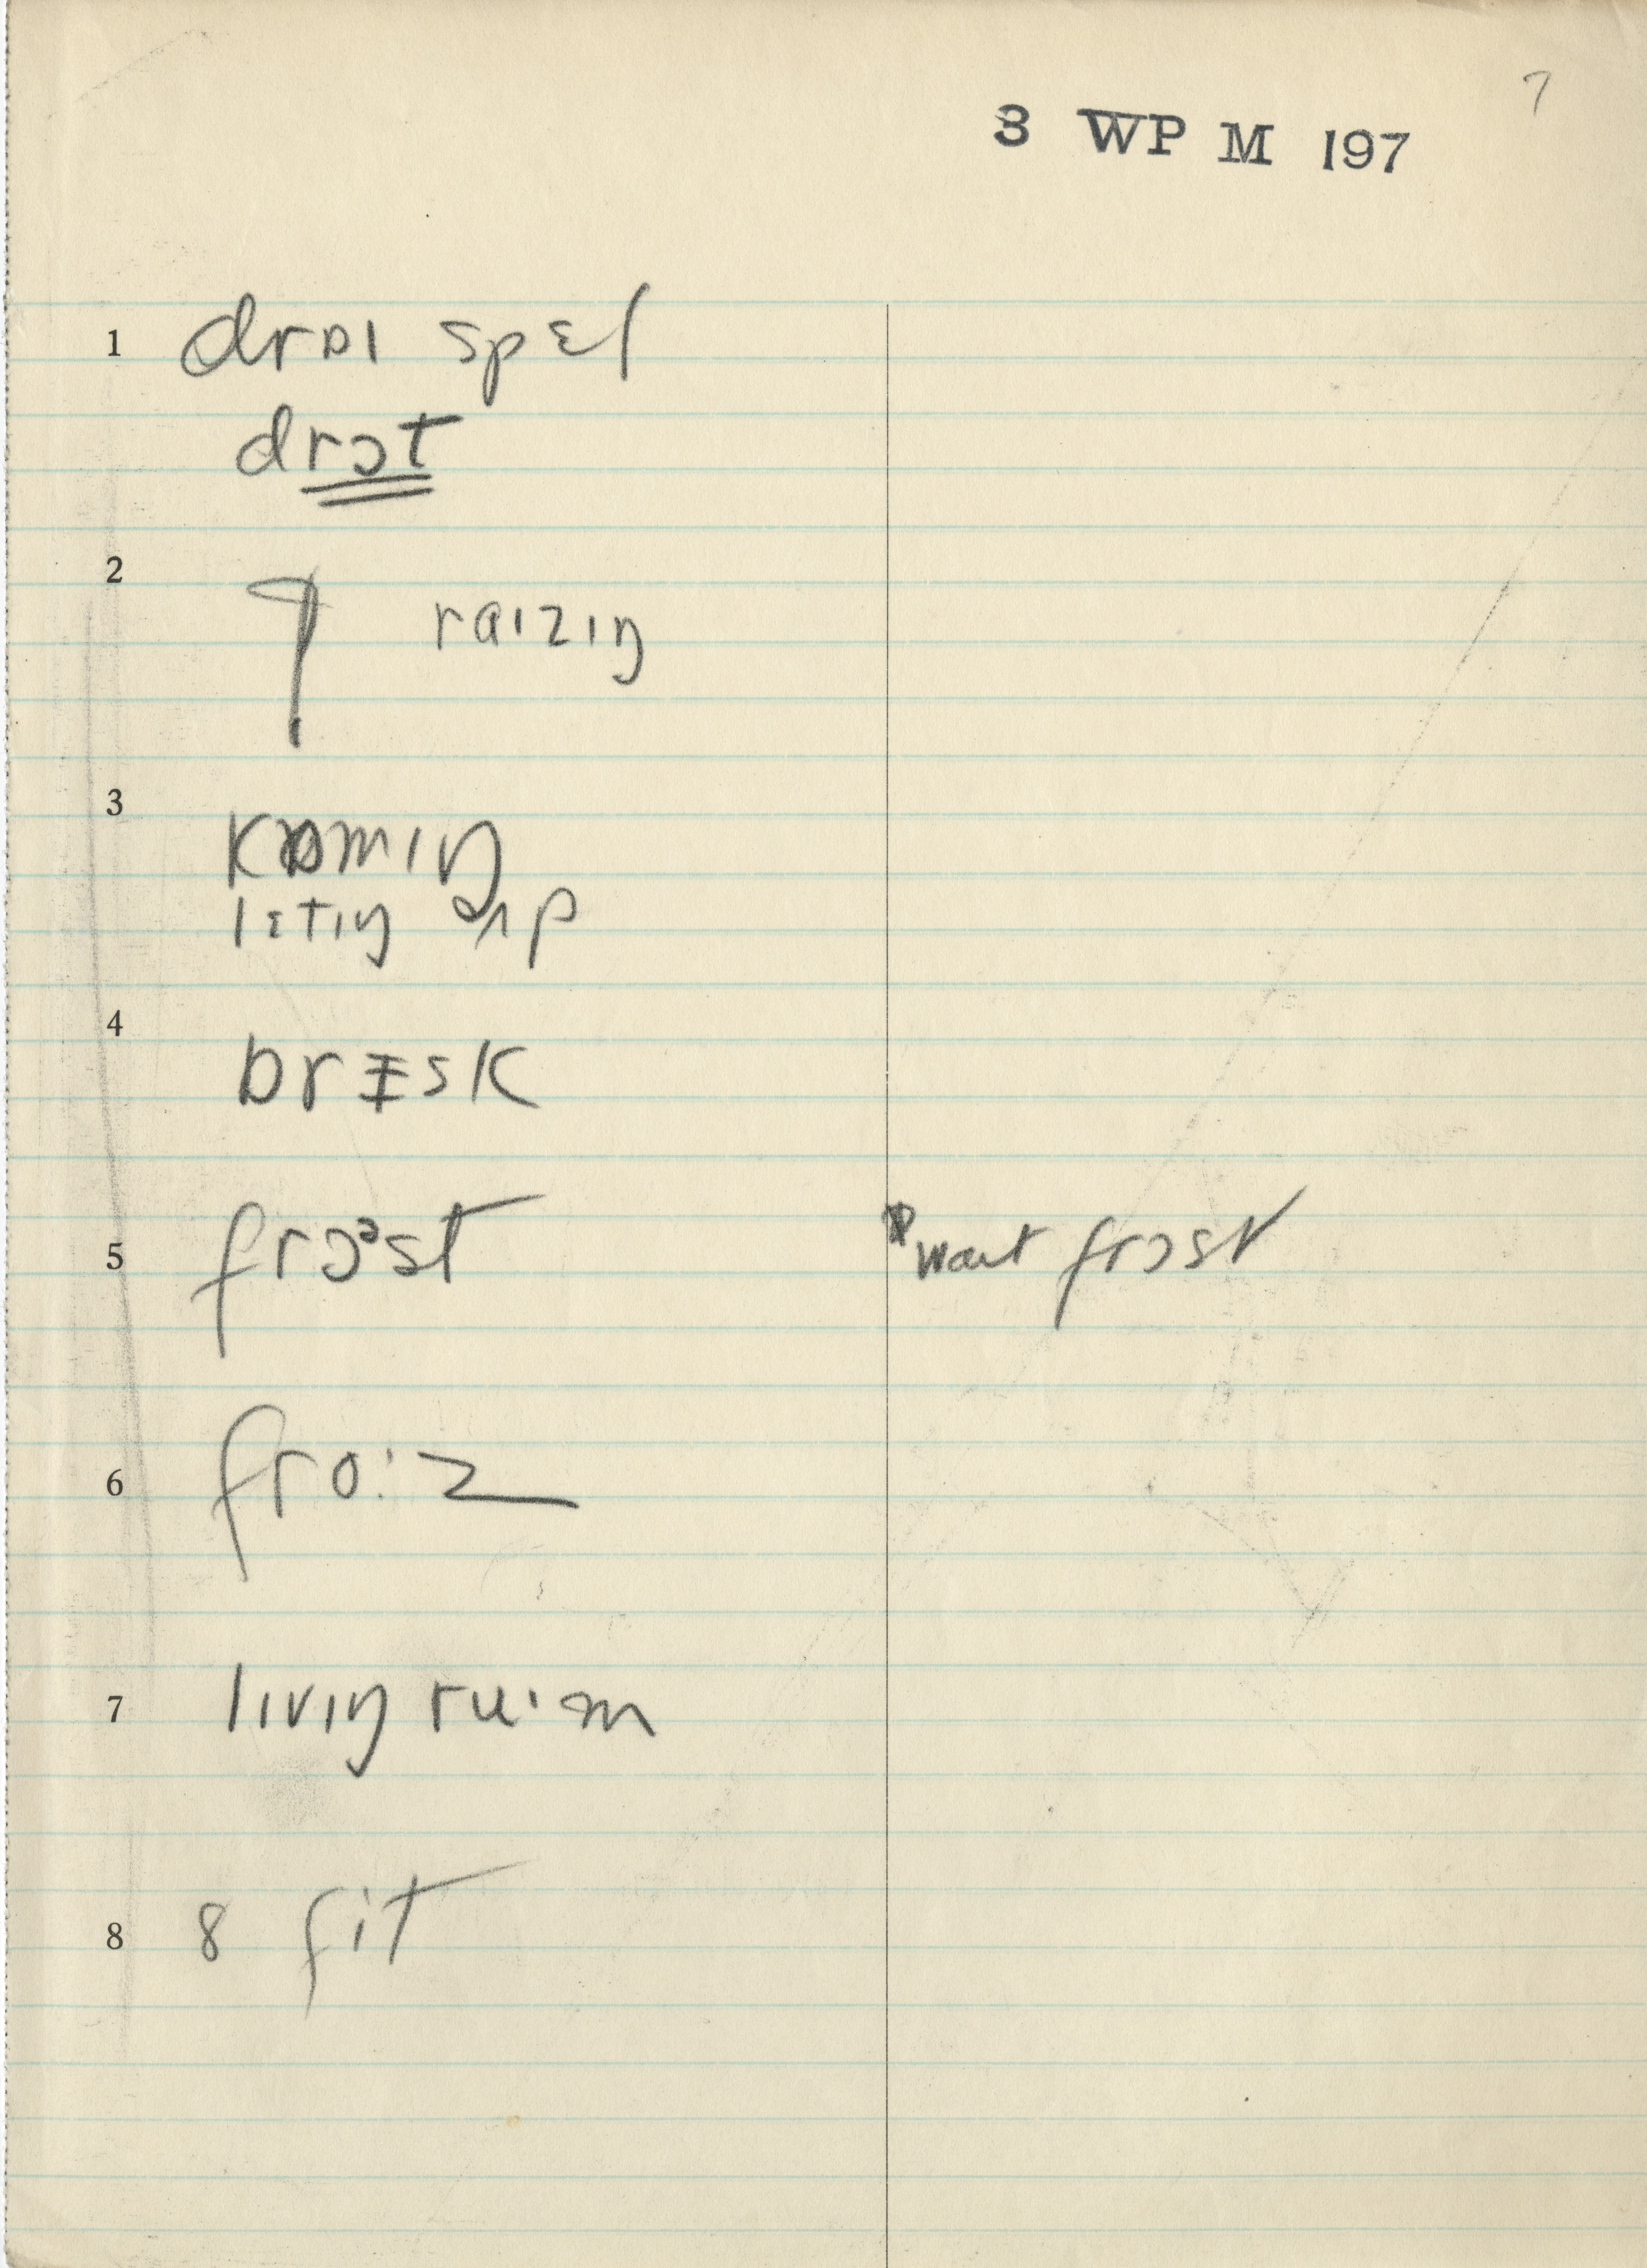 7
3 WP M 197
1 draɪ spɛl
drɔt
2 raɪzɪŋ
3 kɒmɪŋ
lɛtɪŋ ʌp
4 brɪsk
5 frɔᵊst want frɔst
6 fro:z
7 lɪvɪŋ ru·m
8 8 fit